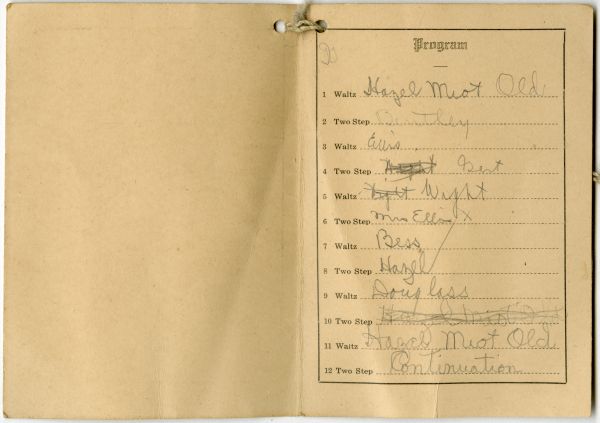 Program
1 Waltz Hazel Miot Old
2 Two Step Bentley
3 Waltz Ellis
4 Two Step Gert
5 Waltz Wight
6 Two Step Mrs Ellis X
7 Waltz Bess
8 Two Step Hazel
9 Waltz Douglass
10 Two Step
11 Waltz Hazel Miot Old
12 Two Step Continuation